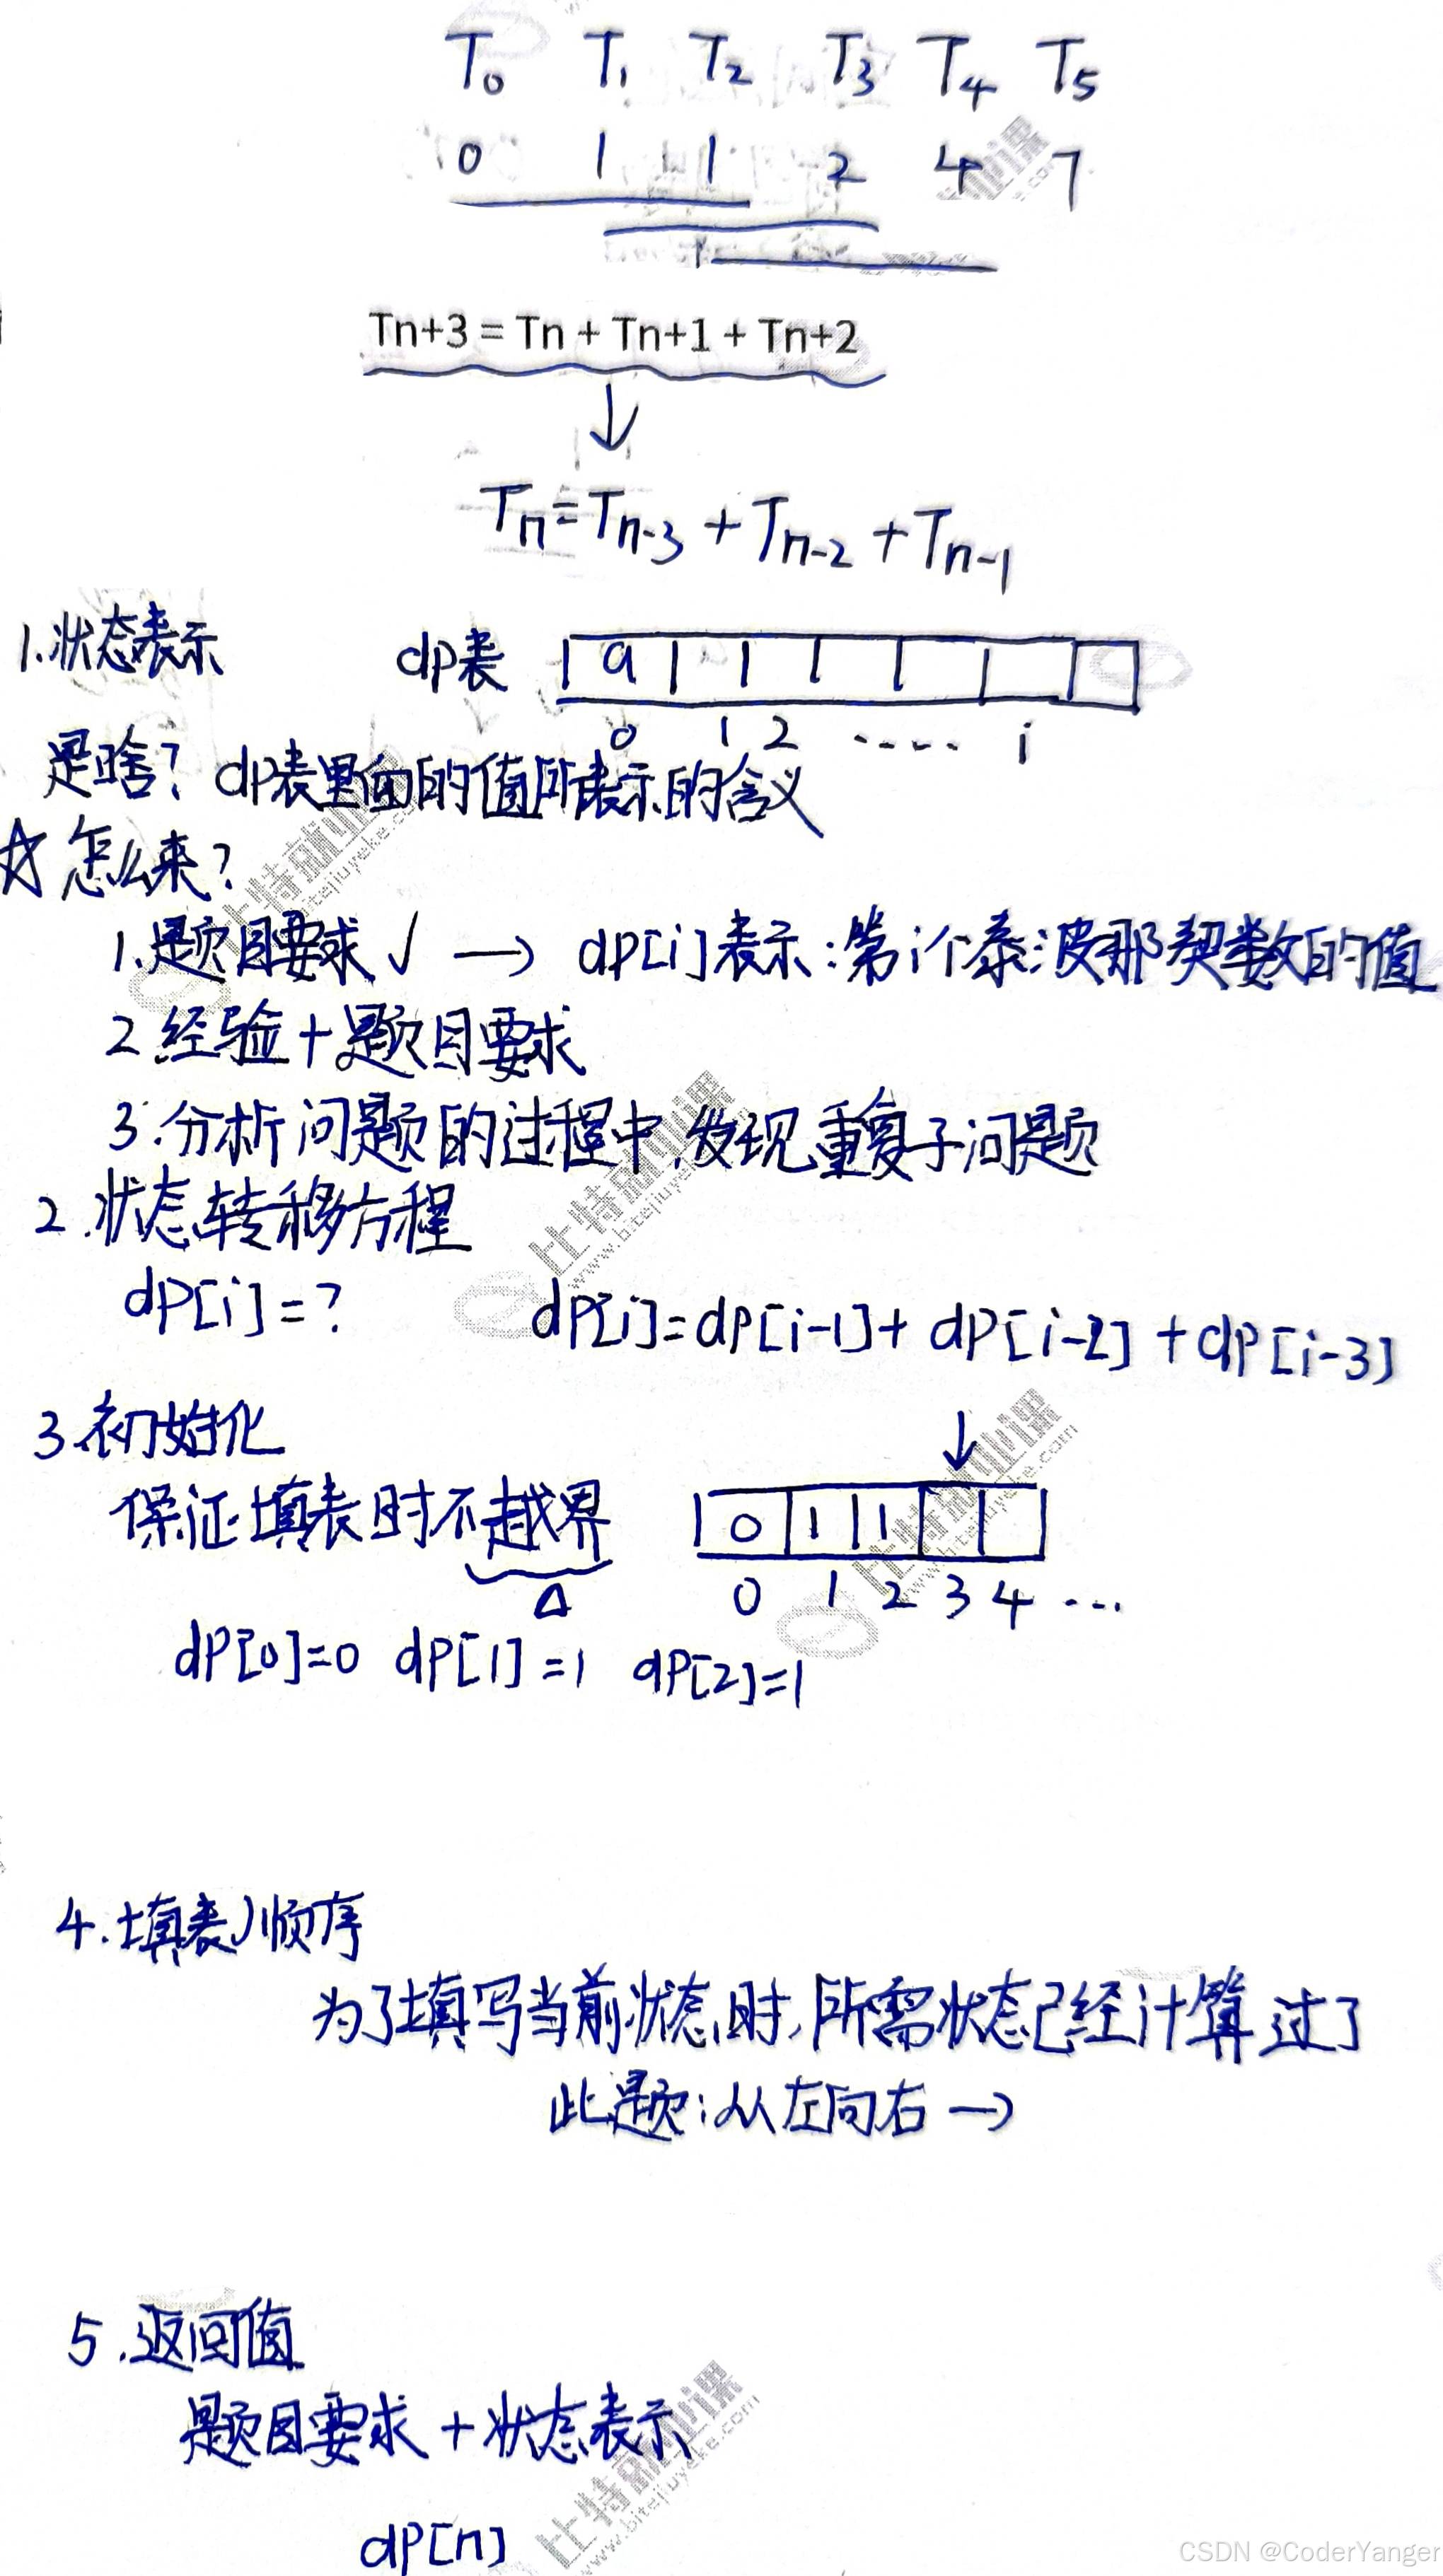 T0 T1 T2 T3 T4 T5
0 1 1 2 4 7
Tn+3 = Tn + Tn+1 + Tn+2
↓
Tn=Tn-3 + Tn-2 + Tn-1
1.状态表示 dp表 a
0 1 2 ..... i
是啥? dp表里面的值所表示的含义
☆ 怎么来?
1.题目要求 √ → dp[i]表示:第i个泰波那契数的值
2 经验+题目要求
3.分析问题的过程中,发现重复子问题
2.状态转移方程
dp[i]=? dp[i]=dp[i-1]+ dp[i-2] + dp[i-3]
3.初始化 ↓
保证填表时不越界 0 1 1
0 1 2 3 4 ...
dp[0]=0 dp[1]=1 dp[2]=1
4.填表顺序
为了填写当前状态时,所需状态已经计算过了
此题:从左向右 →
5.返回值
题目要求 + 状态表示
dp[n]
比特就业课
www.bitejiuyeke.com
CSDN @CoderYanger